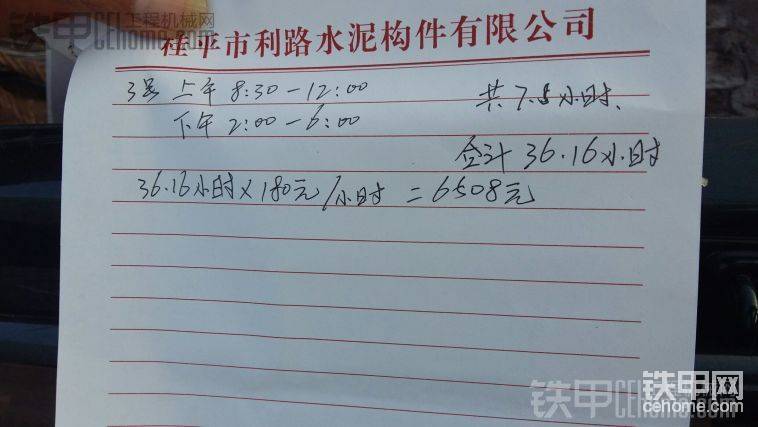 铁甲工程机械网
CEhome.com
桂平市利路水泥构件有限公司
3号 上午 8:30-12:00 共7.5小时.
下午 2:00-6:00
合计 36.16小时
36.16小时×180元/小时=6508元
铁甲网
cehome.com